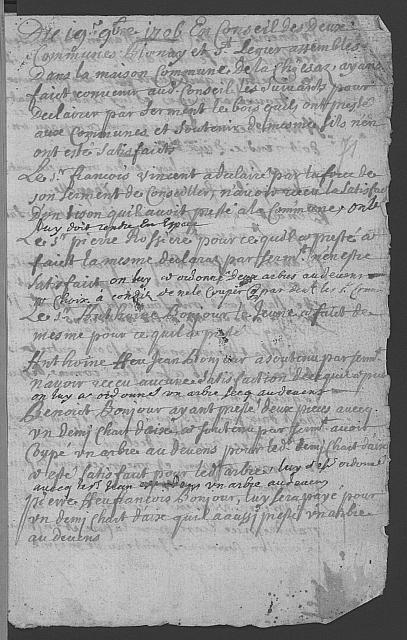 Du 19e 9bre 1706 En Conseil des deux
Communes Blonay et St Legier assemblés
Dans la maison Commune de la Chiesaz ayans
fait convenir aud. Conseil les suivants pour
Declairer par serment le bois quils ont presté
aux Communes et soutenir de mesme sils nen
ont esté satisfaits
Le Sr francois vincent a declairé par la force de
son serment de Conseiller, n'avoir receu de satisfac
d'un tison qu'il avoit presté a la Commune, on le
luy doit rendre En Espece
Le Sr pierre Rossire pour ce quil a presté a
faict la mesme declara par serm. n'en estre
satisfait, on luy a ordonné deux arbres au devens
Choix a condi de ne le Couper
Le Sr Anthoine Bonjour le Jeune a fait de
mesme pour ce quil a presté
Anthoine ffeu Jean Bonjour a soutenu par serm.
n'avoir receu aucune satisfaction de ce quil a pre
on luy a ordonné un arbre secq au devens
Benoit Bonjour ayant presté deux pieces avecq
un demj Chart d'aise a soutenu par serm. avoit
Coupé un arbre au devens pour led. demj Chart d'aise
a esté satisfait pour led. arbre, luy est ordonné
avecq le Sr Jean un arbre au devens
pierre ffeu francois Bonjour, luy sera payé pour
un demj Chart d'aise quil a aussj presté un arbre
au devens